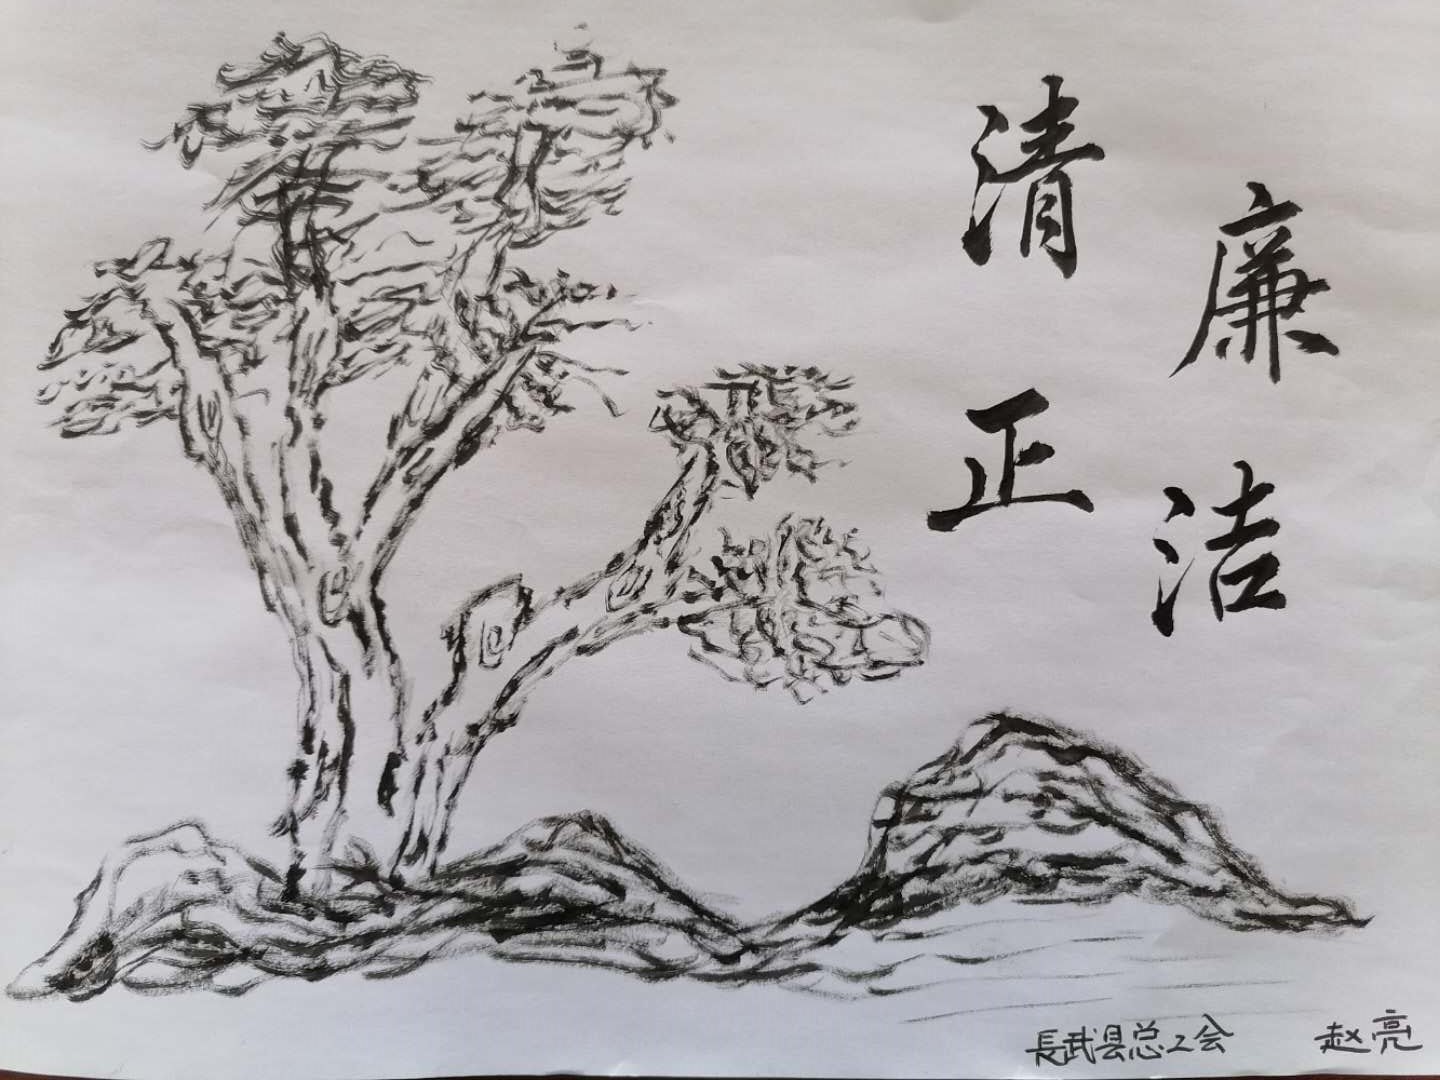 廉洁
清正
長武县总工会 赵亮